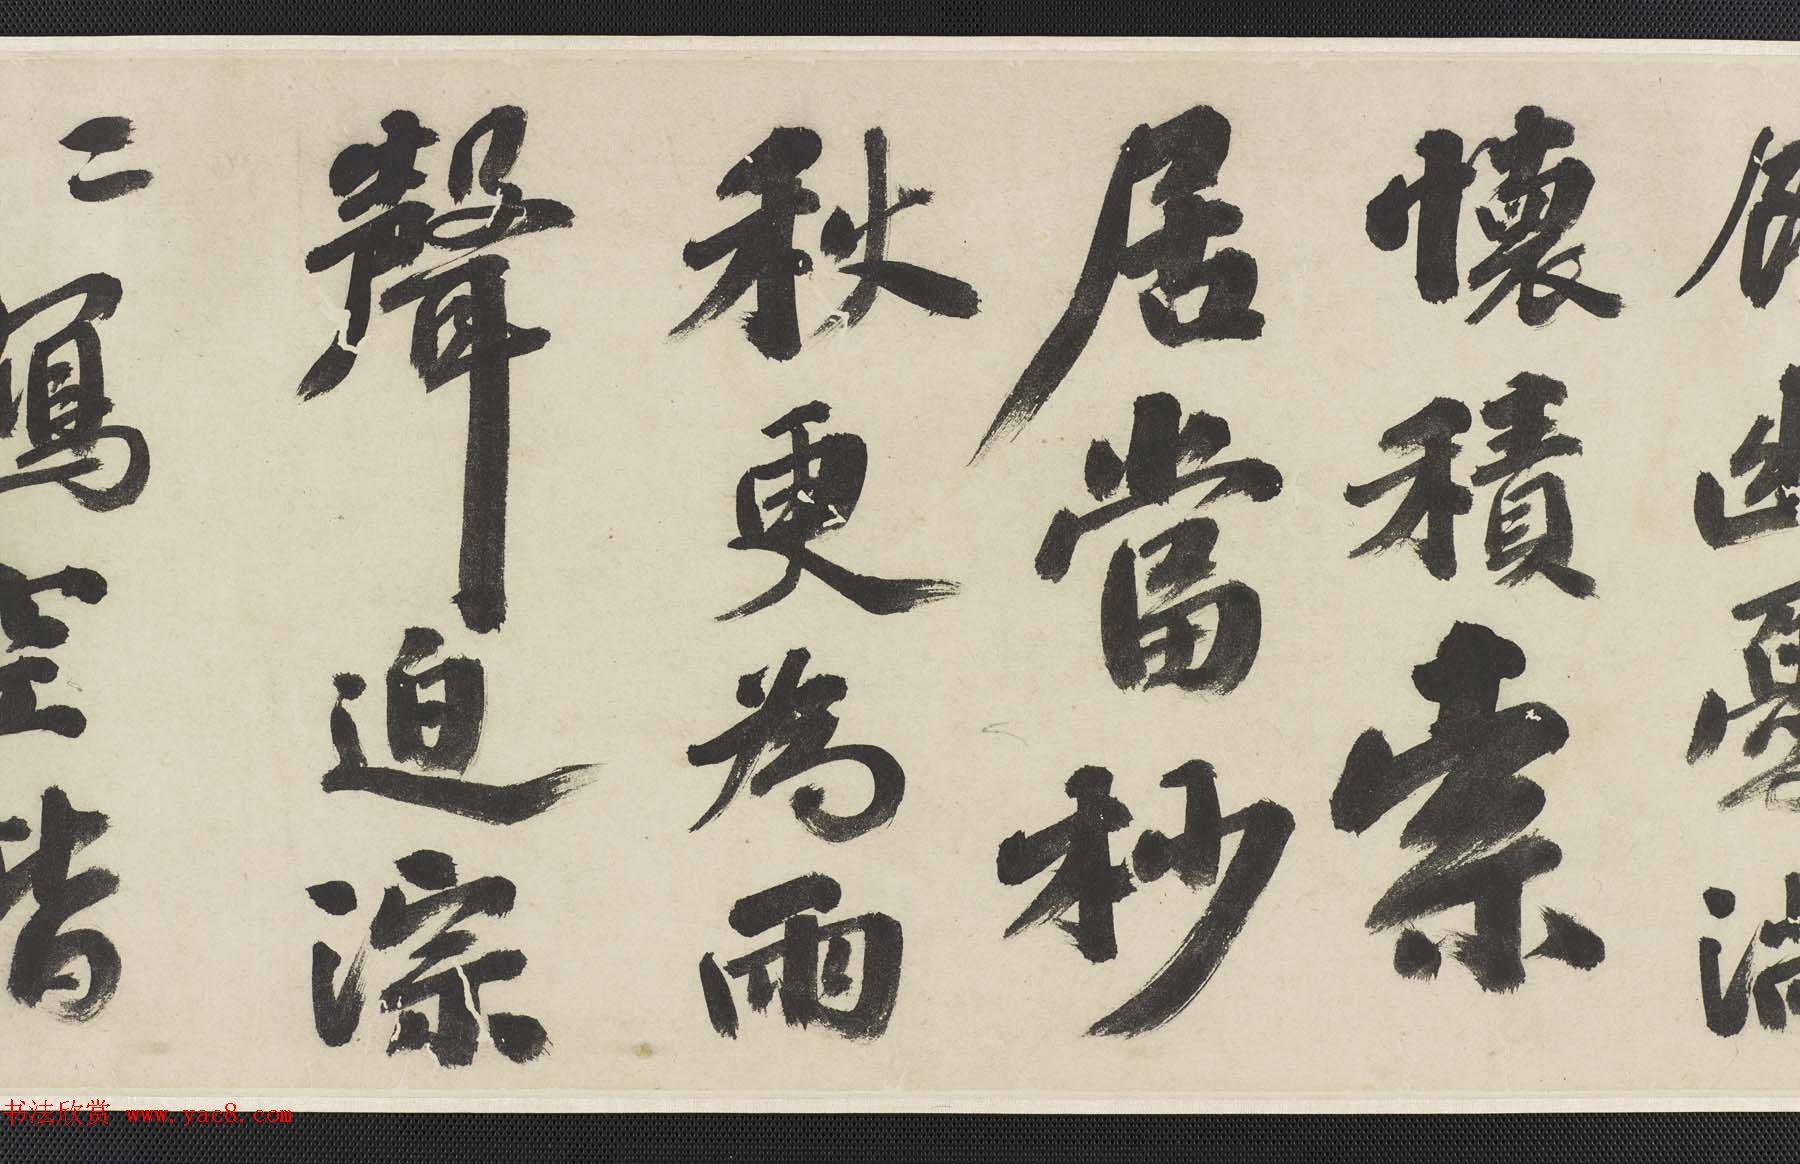 幽憂滿
懷積索
居當杪
秋更為雨
聲迫淙
二寫空階
书法欣赏 www.yac8.com